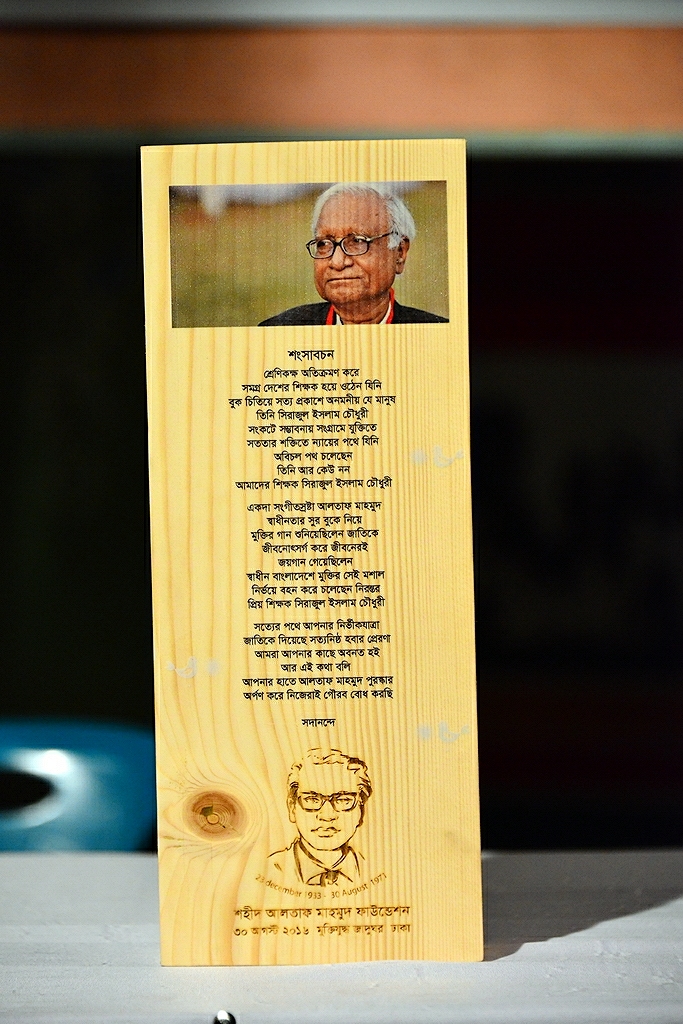 শংসাবচন
শ্রেণিকক্ষ অতিক্রমণ করে
সমগ্র দেশের শিক্ষক হয়ে ওঠেন যিনি
বুক চিতিয়ে সত্য প্রকাশে অনমনীয় যে মানুষ
তিনি সিরাজুল ইসলাম চৌধুরী
সংকটে সম্ভাবনায় সংগ্রামে যুক্তিতে
সততার শক্তিতে ন্যায়ের পথে যিনি
অবিচল পথ চলেছেন
তিনি আর কেউ নন
আমাদের শিক্ষক সিরাজুল ইসলাম চৌধুরী
একদা সংগীতস্রষ্টা আলতাফ মাহমুদ
স্বাধীনতার সুর বুকে নিয়ে
মুক্তির গান শুনিয়েছিলেন জাতিকে
জীবনোৎসর্গ করে জীবনেরই
জয়গান গেয়েছিলেন
স্বাধীন বাংলাদেশে মুক্তির সেই মশাল
নির্ভয়ে বহন করে চলেছেন নিরন্তর
প্রিয় শিক্ষক সিরাজুল ইসলাম চৌধুরী
সত্যের পথে আপনার নির্ভীকযাত্রা
জাতিকে দিয়েছে সত্যনিষ্ঠ হবার প্রেরণা
আমরা আপনার কাছে অবনত হই
আর এই কথা বলি
আপনার হাতে আলতাফ মাহমুদ পুরস্কার
অর্পণ করে নিজেরাই গৌরব বোধ করছি
সদানন্দে
23 december 1933 - 30 August 1971
শহীদ আলতাফ মাহমুদ ফাউন্ডেশন
৩০ আগস্ট ২০১৬ মুক্তিযুদ্ধ জাদুঘর ঢাকা